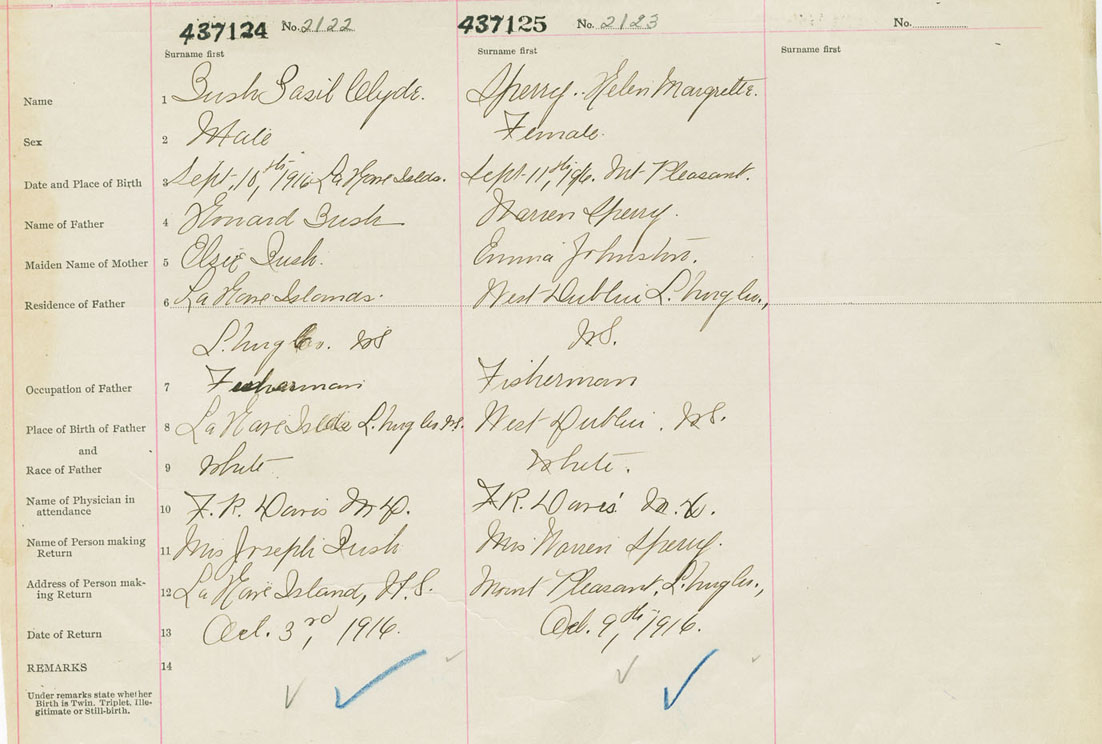 437124 No. 2122 437125 No. 2123 No.
Surname first Surname first Surname first
Name 1 Bush Basil Clyde. Sperry.. Helen Margrette.
Sex 2 Male Female.
Date and Place of Birth 3 Sept. 18,th 1916 La Have Islds. Sept. 11,th 1916. Mt Pleasant.
Name of Father 4 Howard Bush Warren Sperry.
Maiden Name of Mother 5 Elsie Bush. Emma Johnston.
Residence of Father 6 La Have Islands. West Dublin L'burg Co.,
L'burg Co. NS NS.
Occupation of Father 7 Fisherman Fisherman
Place of Birth of Father 8 La Have Islds L'burg Co. NS. West Dublin. NS.
and
Race of Father 9 White White.
Name of Physician in
attendance 10 F. R. Davis M.D. F. R. Davis M.D.
Name of Person making
Return 11 Mrs Joseph Bush Mrs Warren Sperry.
Address of Person mak-
ing Return 12 La Have Island, N.S. Mount Pleasant, L'burg Co.,
Date of Return 13 Oct. 3rd, 1916. Oct. 9,th 1916.
REMARKS 14
Under remarks state whether
Birth is Twin. Triplet, Ille-
gitimate or Still-birth.